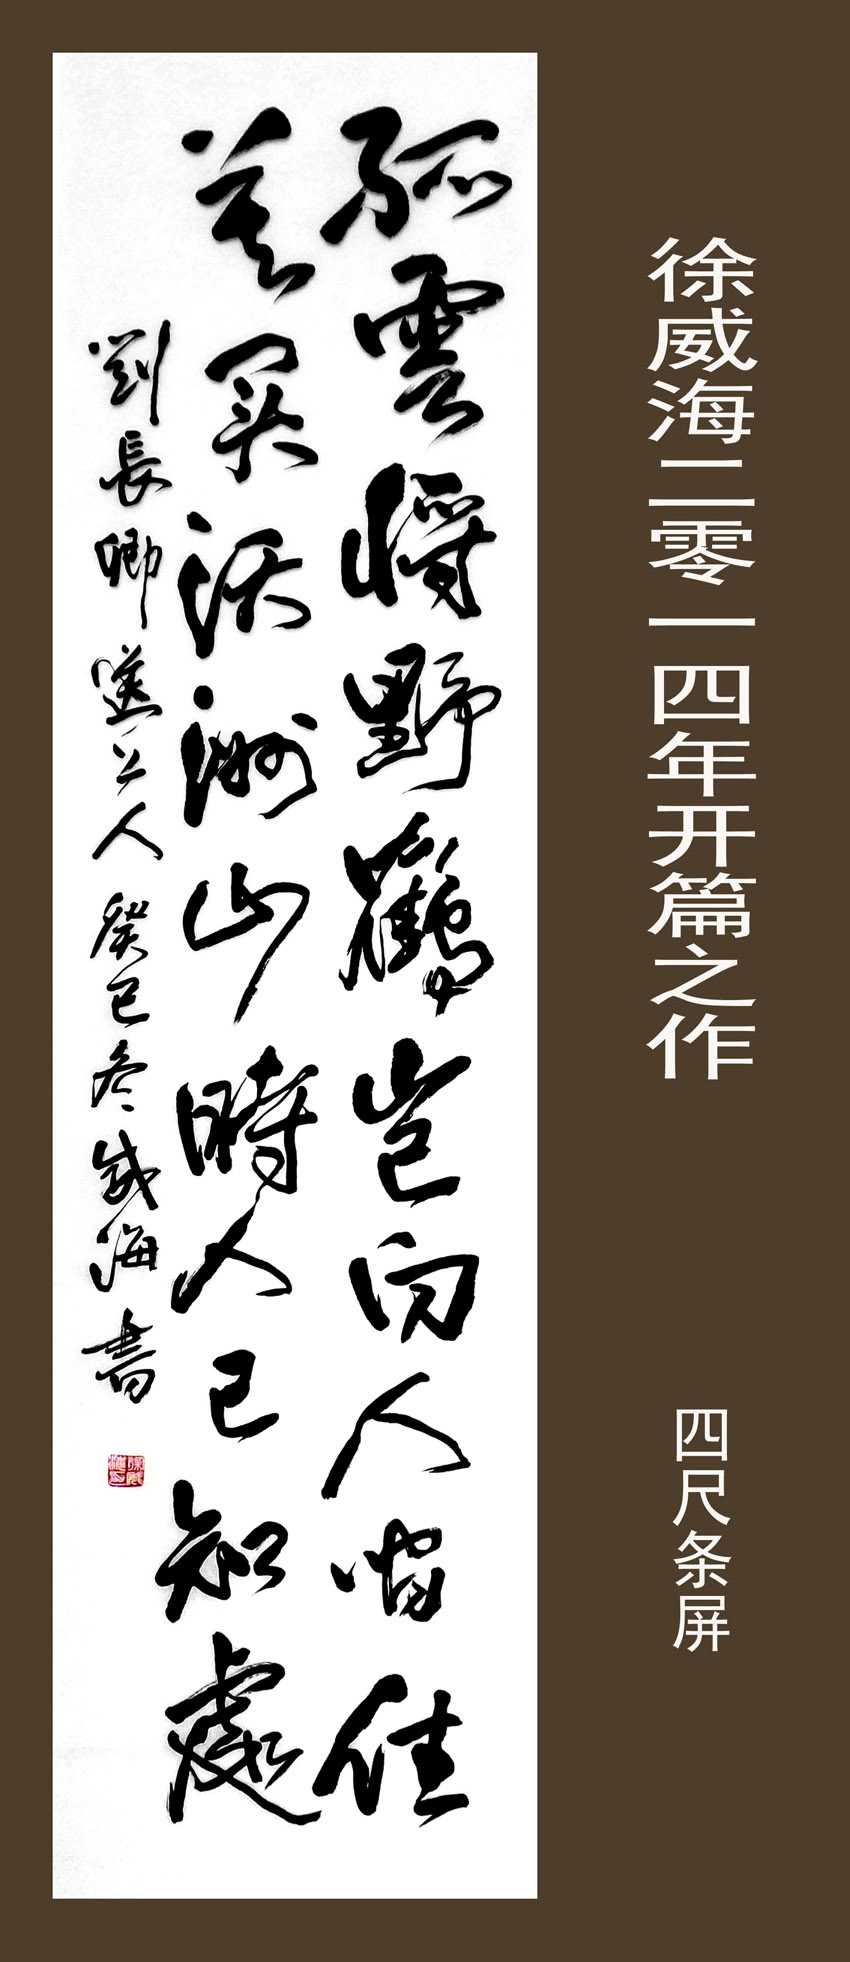 徐威海二零一四年开篇之作
四尺条屏
孤雲將野鶴豈向人間住
莫買沃洲山時人已知處
劉長卿送上人 癸巳冬威海書